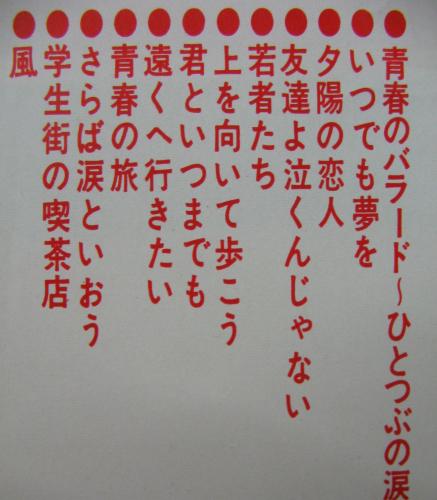 ●青春のバラード~ひとつぶの涙
●いつでも夢を
●夕陽の恋人
●友達よ泣くんじゃない
●若者たち
●上を向いて歩こう
●君といつまでも
●遠くへ行きたい
●青春の旅
●さらば涙といおう
●学生街の喫茶店
●風